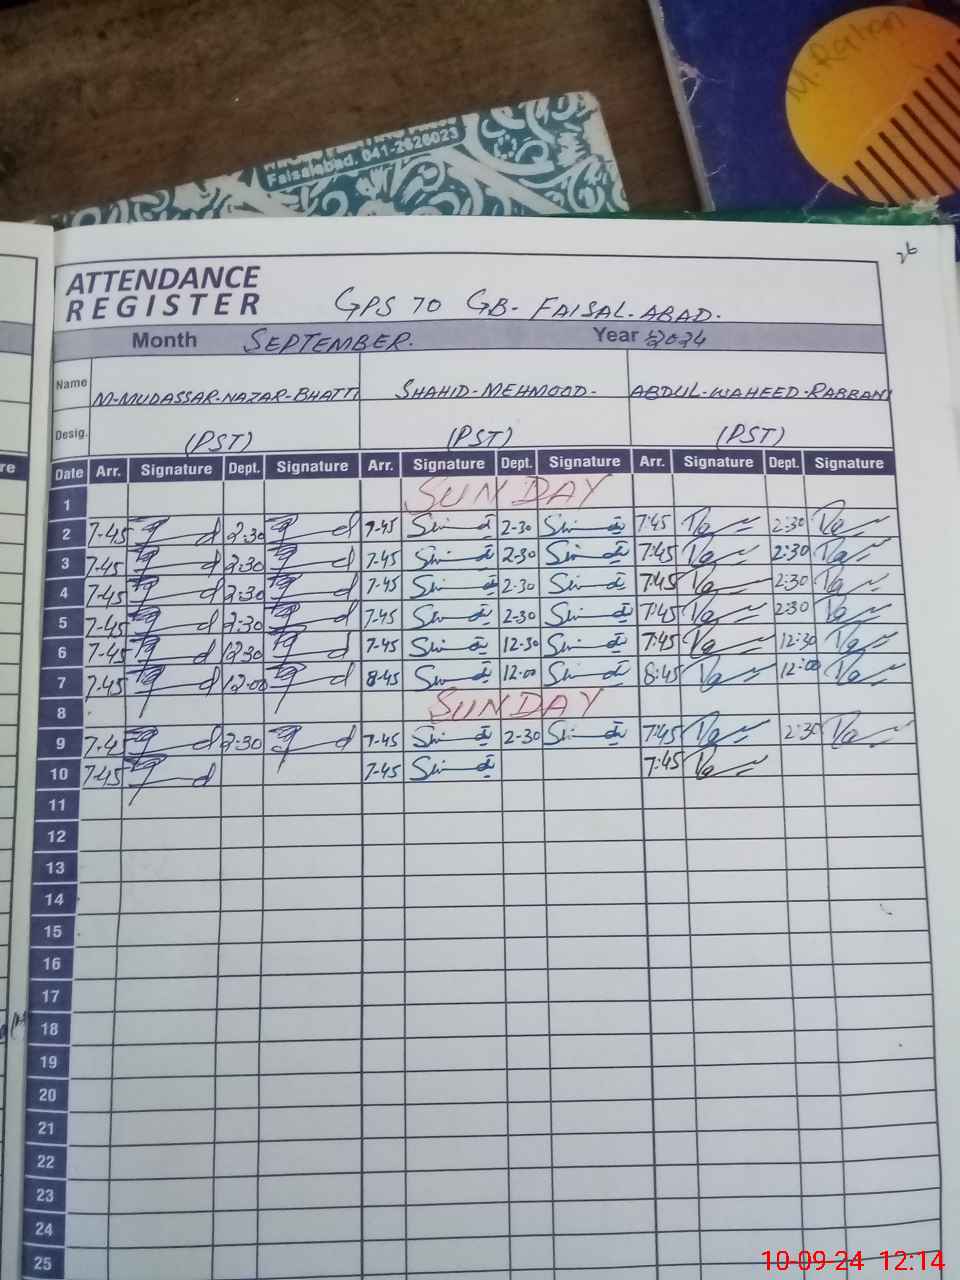 M. Rahan
Faisalabad. 041-2626023
26
ATTENDANCE
REGISTER
GPS 70 GB- FAISAL-ABAD.
Month SEPTEMBER. Year 2024
Name M-MUDASSAR-NAZAR-BHATTI SHAHID-MEHMOOD- ABDUL-WAHEED-RABBANI
Desig. (PST) (PST) (PST)
Date Arr. Signature Dept. Signature Arr. Signature Dept. Signature Arr. Signature Dept. Signature
1 SUNDAY
2 7-45 2-30 7-45 2-30 7:45 2:30
3 7-45 2-30 7-45 2-30 7:45 2:30
4 7-45 2-30 7-45 2-30 7:45 2:30
5 7-45 2-30 7-45 2-30 7:45 2:30
6 7-45 12-30 7-45 12-30 7:45 12:30
7 7-45 12-00 8-45 12-00 8:45 12:00
8 SUNDAY
9 7-4 2-30 7-45 2-30 7:45 2:30
10 7-45 7-45 7:45
11
12
13
14
15
16
17
18
19
20
21
22
23
24
25
10-09-24 12:14